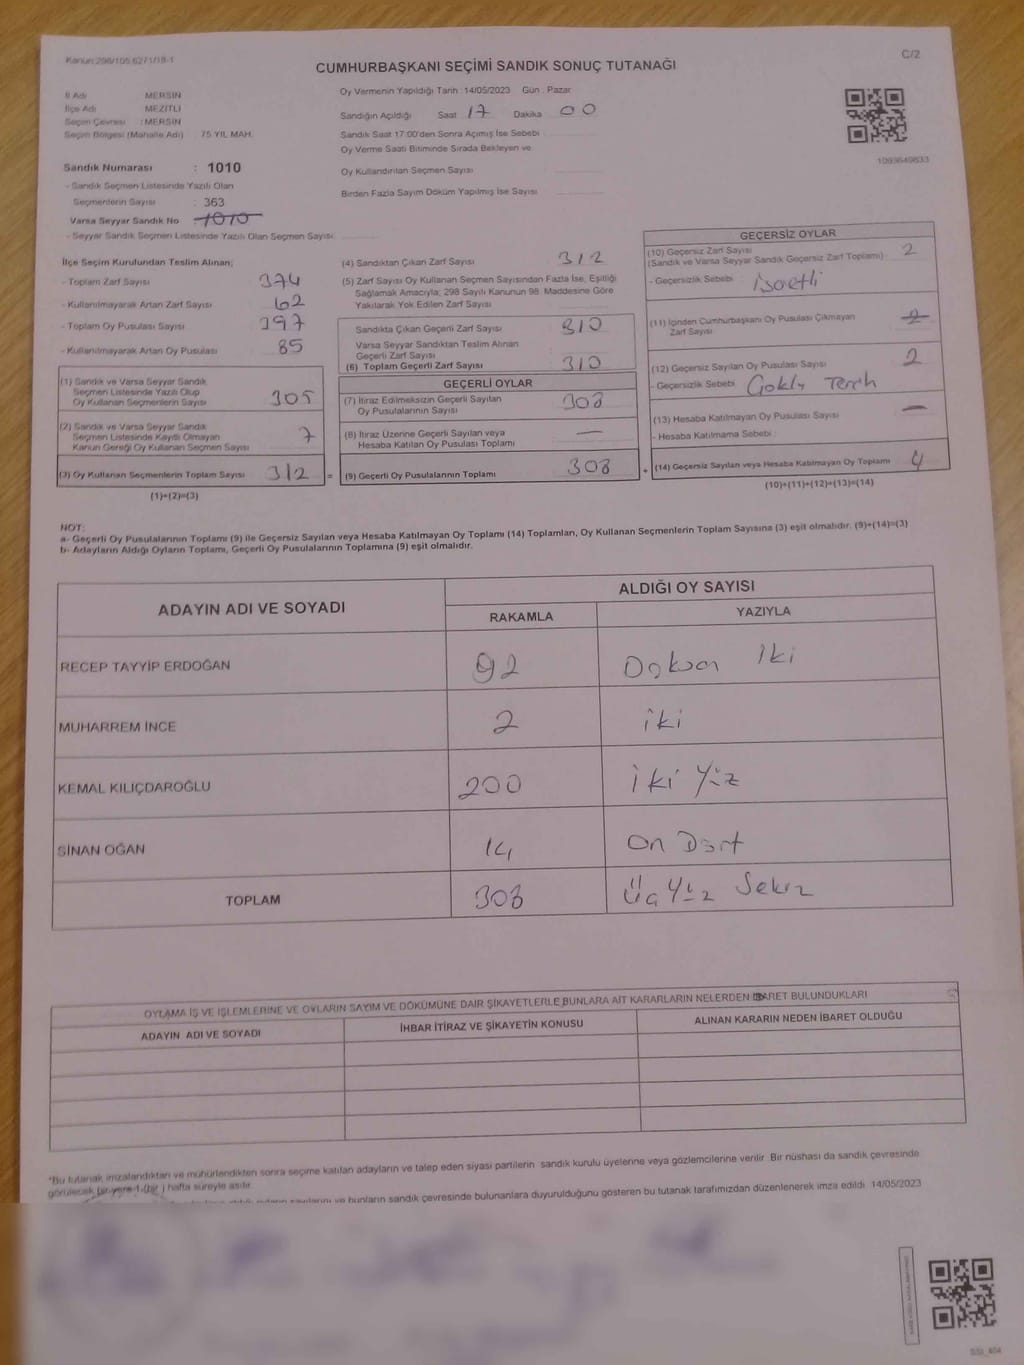 Kanun:298/105,6271/18-1
C/2
CUMHURBAŞKANI SEÇİMİ SANDIK SONUÇ TUTANAĞI
İl Adı MERSİN
İlçe Adı MEZİTLİ
Seçim Çevresi : MERSİN
Seçim Bölgesi (Mahalle Adı) 75 YIL MAH.
Oy Vermenin Yapıldığı Tarih : 14/05/2023 Gün : Pazar
Sandığın Açıldığı Saat 17 Dakika 00
Sandık Saat 17:00'den Sonra Açımış İse Sebebi
Oy Verme Saati Bitiminde Sırada Bekleyen ve
Oy Kullandırılan Seçmen Sayısı
Birden Fazla Sayım Döküm Yapılmış İse Sayısı
1093649833
Sandık Numarası : 1010
- Sandık Seçmen Listesinde Yazılı Olan
Seçmenlerin Sayısı : 363
Varsa Seyyar Sandık No : 1010
- Seyyar Sandık Seçmen Listesinde Yazılı Olan Seçmen Sayısı:
İlçe Seçim Kurulundan Teslim Alınan;
- Toplam Zarf Sayısı 374
- Kullanılmayarak Artan Zarf Sayısı 62
- Toplam Oy Pusulası Sayısı 397
- Kullanılmayarak Artan Oy Pusulası 85
(1) Sandık ve Varsa Seyyar Sandık
Seçmen Listesinde Yazılı Olup
Oy Kullanan Seçmenlerin Sayısı 305
(2) Sandık ve Varsa Seyyar Sandık
Seçmen Listesinde Kayıtlı Olmayan
Kanun Gereği Oy Kullanan Seçmen Sayısı 7
(3) Oy Kullanan Seçmenlerin Toplam Sayısı 312 =
(1)+(2)=(3)
(4) Sandıktan Çıkan Zarf Sayısı 312
(5) Zarf Sayısı Oy Kullanan Seçmen Sayısından Fazla İse, Eşitliği
Sağlamak Amacıyla; 298 Sayılı Kanunun 98. Maddesine Göre
Yakılarak Yok Edilen Zarf Sayısı
Sandıkta Çıkan Geçerli Zarf Sayısı 310
Varsa Seyyar Sandıktan Teslim Alınan
Geçerli Zarf Sayısı
(6) Toplam Geçerli Zarf Sayısı 310
GEÇERLİ OYLAR
(7) İtiraz Edilmeksizin Geçerli Sayılan
Oy Pusulasının Sayısı 308
(8) İtiraz Üzerine Geçerli Sayılan veya
Hesaba Katılan Oy Pusulası Toplamı —
(9) Geçerli Oy Pusulalarının Toplamı 308 +
GEÇERSİZ OYLAR
(10) Geçersiz Zarf Sayısı 2
(Sandık ve Varsa Seyyar Sandık Geçersiz Zarf Toplamı)
- Geçersizlik Sebebi : işaetli
(11) İçinden Cumhurbaşkanı Oy Pusulası Çıkmayan
Zarf Sayısı 2
(12) Geçersiz Sayılan Oy Pusulası Sayısı 2
- Geçersizlik Sebebi : Çoklu Tercih
(13) Hesaba Katılmayan Oy Pusulası Sayısı —
- Hesaba Katılmama Sebebi :
(14) Geçersiz Sayılan veya Hesaba Katılmayan Oy Toplamı 4
(10)+(11)+(12)+(13)=(14)
NOT:
a- Geçerli Oy Pusulalarının Toplamı (9) ile Geçersiz Sayılan veya Hesaba Katılmayan Oy Toplamı (14) Toplamları, Oy Kullanan Seçmenlerin Toplam Sayısına (3) eşit olmalıdır. (9)+(14)=(3)
b- Adayların Aldığı Oyların Toplamı, Geçerli Oy Pusulalarının Toplamına (9) eşit olmalıdır.
ADAYIN ADI VE SOYADI
ALDIĞI OY SAYISI
RAKAMLA YAZIYLA
RECEP TAYYİP ERDOĞAN 92 Doksan İki
MUHARREM İNCE 2 iki
KEMAL KILIÇDAROĞLU 200 iki Yüz
SİNAN OĞAN 14 On Dört
TOPLAM 308 Üç Yüz Sekiz
OYLAMA İŞ VE İŞLEMLERİNE VE OYLARIN SAYIM VE DÖKÜMÜNE DAİR ŞİKAYETLERLE BUNLARA AİT KARARLARIN NELERDEN İBARET BULUNDUKLARI
ADAYIN ADI VE SOYADI İHBAR İTİRAZ VE ŞİKAYETİN KONUSU ALINAN KARARIN NEDEN İBARET OLDUĞU
*Bu tutanak imzalandıktan ve mühürlendikten sonra seçime katılan adayların ve talep eden siyasi partilerin sandık kurulu üyelerine veya gözlemcilerine verilir .Bir nüshası da sandık çevresinde
görülecek bir yere 1 (bir ) hafta süreyle asılır.
ve bunların sandık çevresinde bulunanlara duyurulduğunu gösteren bu tutanak tarafımızdan düzenlenerek imza edildi. 14/05/2023